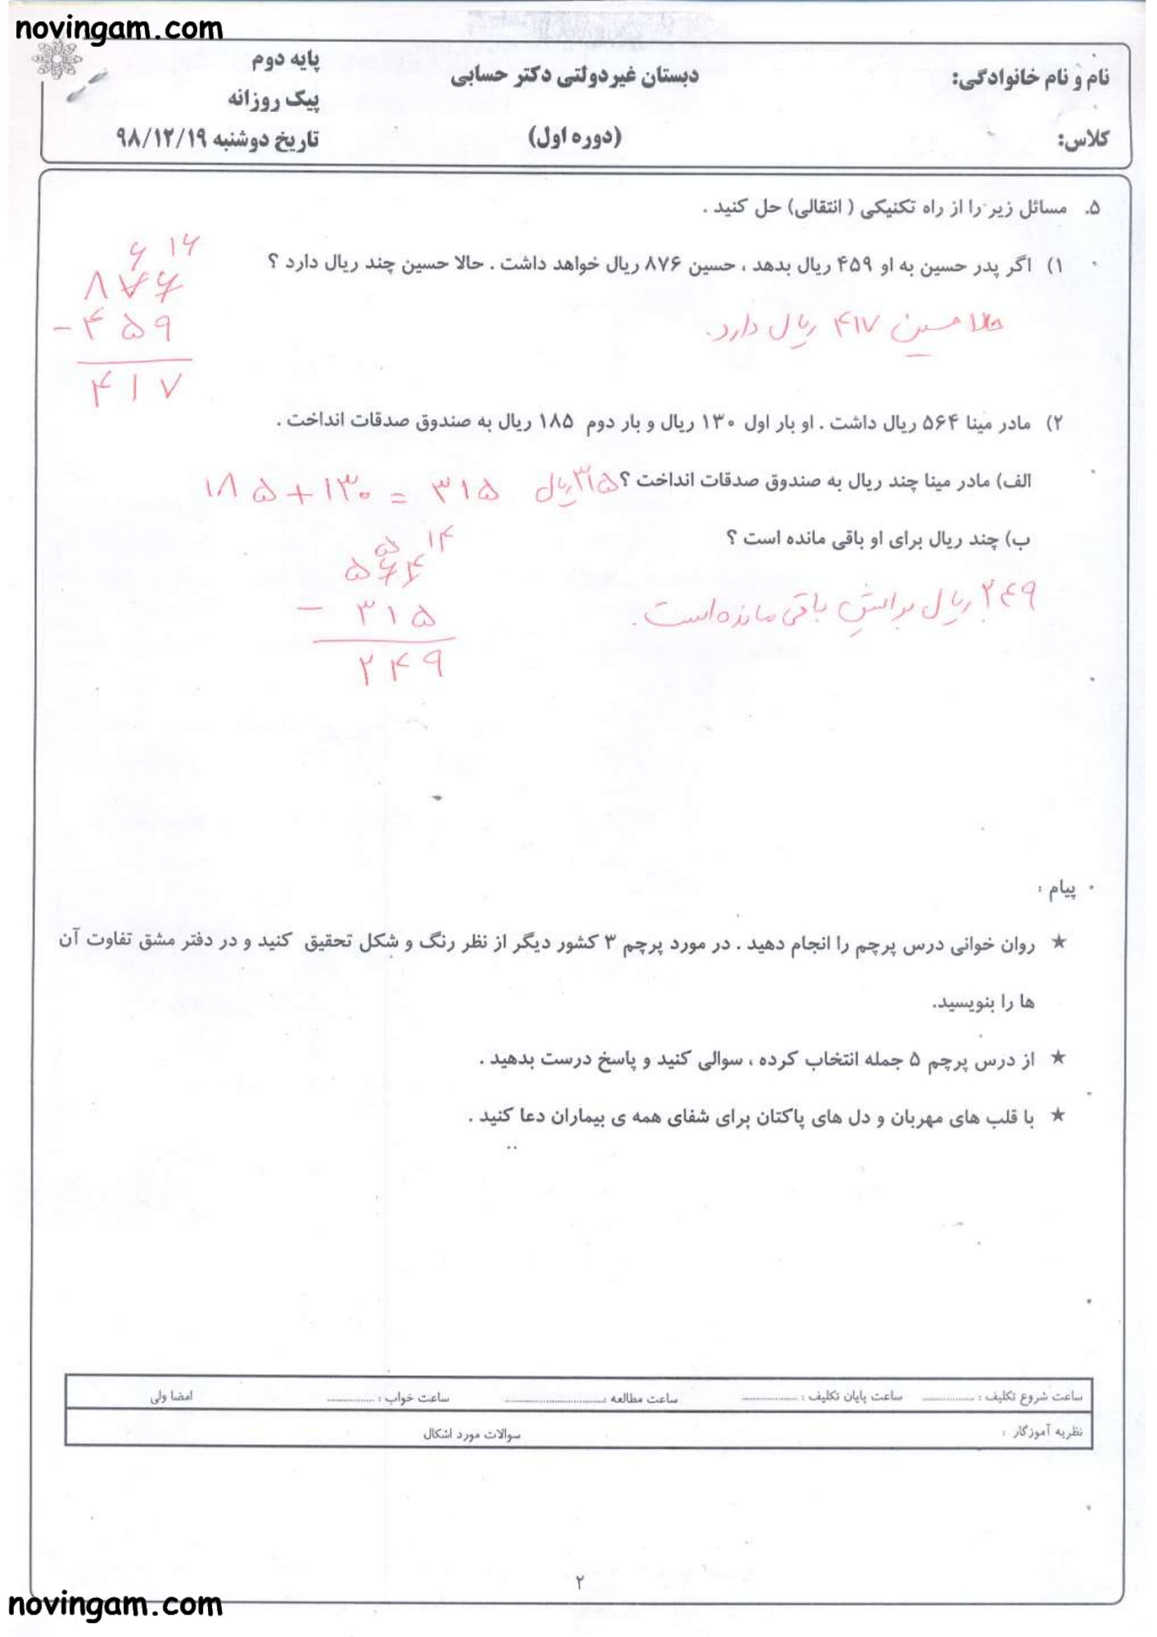 novingam.com
نام و نام خانوادگی:
دبستان غیردولتی دکتر حسابی
پایه دوم
پیک روزانه
کلاس:
(دوره اول)
تاریخ دوشنبه ۹۸/۱۲/۱۹
۵. مسائل زیر را از راه تکنیکی ( انتقالی) حل کنید .
۱) اگر پدر حسین به او ۴۵۹ ریال بدهد ، حسین ۸۷۶ ریال خواهد داشت . حالا حسین چند ریال دارد ؟
۶ ۱۶
۸۷۶
- ۴۵۹
۴۱۷
حالا حسین ۴۱۷ ریال دارد.
۲) مادر مینا ۵۶۴ ریال داشت . او بار اول ۱۳۰ ریال و بار دوم ۱۸۵ ریال به صندوق صدقات انداخت .
الف) مادر مینا چند ریال به صندوق صدقات انداخت ؟ ۳۱۵ ریال
۱۸۵ + ۱۳۰ = ۳۱۵
ب) چند ریال برای او باقی مانده است ؟
۵ ۱۴
۵۶۴
- ۳۱۵
۲۴۹
۲۴۹ ریال برایش باقی مانده است.
پیام :
★ روان خوانی درس پرچم را انجام دهید . در مورد پرچم ۳ کشور دیگر از نظر رنگ و شکل تحقیق کنید و در دفتر مشق تفاوت آن
ها را بنویسید.
★ از درس پرچم ۵ جمله انتخاب کرده ، سوالی کنید و پاسخ درست بدهید .
★ با قلب های مهربان و دل های پاکتان برای شفای همه ی بیماران دعا کنید .
ساعت شروع تکلیف : ............... ساعت پایان تکلیف : ............... ساعت مطالعه : ............... ساعت خواب : ............... امضا ولی
نظریه آموزگار : سوالات مورد اشکال
۲
novingam.com